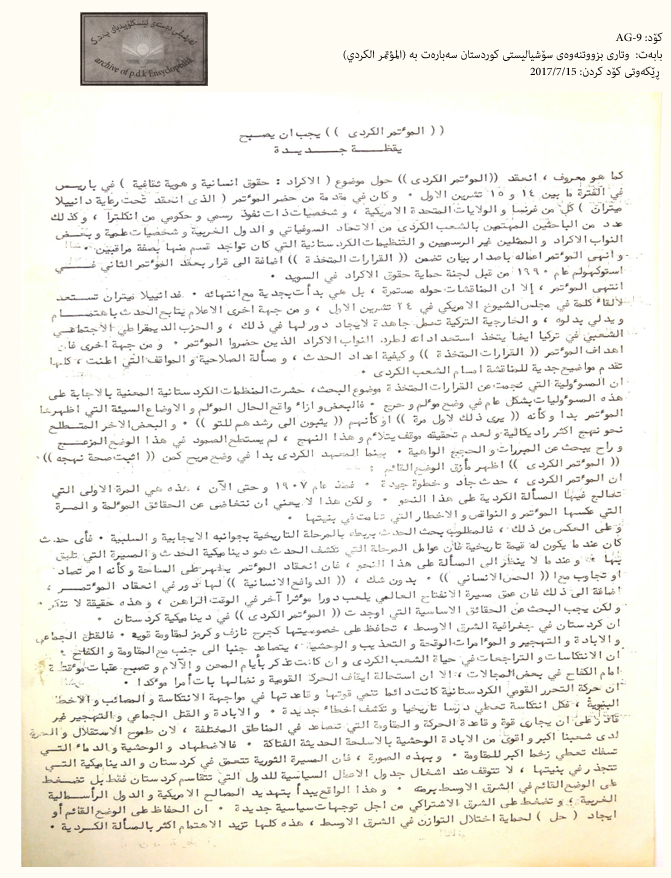 کۆد: AG-9
بابەت: وتاری بزووتنەوەی سۆشیالیستی کوردستان سەبارەت بە (المؤتمر الكردي)
ڕێکەوتی کۆد کردن: 2017/7/15
archive of p.d.k Ensyclopedia
(( المؤتمر الكردى )) يجب ان يصبح
يقظــة جــديــدة
كما هو معروف ، انعقد ((المؤتمر الكردى )) حول موضوع ( الاكراد : حقوق انسانية و هوية ثقافية ) في باريس
في الفترة ما بين ١٤ و ١٥ تشرين الاول ٠ و كان في مقدمة من حضر المؤتمر ( الذى انعقد تحت رعاية دانييلا
ميتران ) كل من فرنسا و الولايات المتحدة الامريكية ، و شخصيات ذات نفوذ رسمي و حكومي من انكلترا ، و كذلك
عدد من الباحثين المهتمين بالشعب الكردى من الاتحاد السوفياتي و الدول الغربية و شخصيات علمية و بعض
النواب الاكراد و الممثلين غير الرسميين و التنظيمات الكردستانية التي كان تواجد قسم منها بصفة مراقبين ٠
و انهى المؤتمر اعماله باصدار بيان تضمن (( القرارات المتخذة )) اضافة الى قرار بعقد المؤتمر الثاني فــي
استوكهولم عام ١٩٩٠ من قبل لجنة حماية حقوق الاكراد في السويد ٠
انتهى المؤتمر ، إلا ان المناقشات حوله مستمرة ، بل هي بدأت بجدية مع انتهائه ٠ فدانييلا ميتران تستعد
لالقاء كلمة في مجلس الشيوخ الامريكي في ٢٤ تشرين الاول ، و من جهة اخرى الاعلام يتابع الحدث باهتمــام
و يدلي بدلوه ، و الخارجية التركية تعمل جاهدة لايجاد دور لها في ذلك ، و الحزب الديمقراطي الاجتماعي
الشعبي في تركيا ايضا يتخذ استعداداته لطرد النواب الاكراد الذين حضروا المؤتمر ٠ و من جهة اخرى فان
اهداف المؤتمر (( القرارات المتخذة )) و كيفية اعداد الحدث ، و مسألة الصلاحية و المواقف التي اعلنت ، كلها
تقدم مواضيع جدية للمناقشة امام الشعب الكردى ٠
ان المسؤولية التي نجمت عن القرارات المتخذة موضوع البحث، حشرت المنظمات الكردستانية المعنية بالاجابة على
هذه المسؤوليات بشكل عام في وضع مؤلم و حرج ٠ فالبعض و ازاء واقع الحال المؤلم و الاوضاع السيئة التي اظهرها
المؤتمر بدا و كأنه (( يرى ذلك لاول مرة )) او كأنهم (( يثبون الى رشدهم للتو )) ٠ و البعض الاخر المتطلع
نحو نهج اكثر راديكالية و لعدم تحقيقه موقف يتلاءم و هذا النهج ، لم يستطع الصمود في هذا الوضع المزعــج
و راح يبحث عن المبررات و الحجج الواهية ٠ بينما الكردى بدا في وضع مريح كمن (( اثبت صحة نهجه ))
(( المؤتمر الكردى )) اظهر مأزق الوضع القائم :
ان المؤتمر الكردى ، حدث جاد و خطوة جيدة ٠ فمنذ عام ١٩٠٧ و حتى الآن ، هذه هي المرة الاولى التي
تعالج فيها المسألة الكردية على هذا النحو ٠ و لكن هذا لا يعني ان نتغاضى عن الحقائق المؤلمة و المرة
التي عكسها المؤتمر و النواقص و الاخطار التي في بنيتها ٠
و على العكس من ذلك ، فالمطلوب بحث الحدث بربطه بالمرحلة التاريخية بجوانبه الايجابية و السلبية ٠ فأى حدث
كان عندما يكون له قيمة تاريخية فان عوامل المرحلة التي تكشف الحدث هو ديناميكية الحدث و المسيرة التي تليق
بها ٠ و عندما لا ينظر الى المسألة على هذا النحو ، فان انعقاد المؤتمر يظهر على الساحة و كأنه امر تصاد
او تجاوب مع (( الحس الانساني )) ٠ بدون شك ، (( الدوافع الانسانية )) لها دور في انعقاد المؤتمــر ،
اضافة الى ذلك فان عمق مسيرة الانفتاح العالمي يلعب دورا مؤثرا آخر في الوقت الراهن ، و هذه حقيقة لا تنكر ٠
و لكن يجب البحث عن الحقائق الاساسية التي اوجدت (( المؤتمر الكردى )) في ديناميكية كردستان ٠
ان كردستان في جغرافية الشرق الاوسط ، تحافظ على خصوبتها كجرح نازف و كرمز لمقاومة قوية ٠ فالقتل الجماعي
و الابادة و التهجير و المؤامرات الوقحة و التعذيب و الوحشية ، يتصاعد جنبا الى جنب مع المقاومة و الكفاح ٠
ان الانتكاسات و التراجعات في حياة الشعب الكردى و ان كانت تذكر بأيام المحن و الآلام و تصبح عقبات مؤقتة
امام الكفاح في بعض المجالات ، الا ان استحالة ايقاف الحركة القومية و نضالها بات أمرا مؤكدا ٠
ان حركة التحرر القومي الكردستانية كانت دائما تنمي قوتها و قاعدتها في مواجهة الانتكاسة و المصائب و الاخطاء
البنيوية ، فكل انتكاسة تعطي درسا تاريخيا و تكشف اخطاء جديدة ٠ و الابادة و القتل الجماعي و التهجير غير
قادر على ان يجارى قوة و قاعدة الحركة و المقاومة التي تتصاعد في المناطق المختلفة ، لان طموح الاستقلال و الحرية
لدى شعبنا اكبر و اقوى من الابادة الوحشية بالاسلحة الحديثة الفتاكة ٠ فالاضطهاد و الوحشية و الدماء التــي
تسفك تعطي زخما اكبر للمقاومة ٠ و بهذه الصورة ، فان المسيرة الثورية تتعمق في كردستان و الديناميكية التــي
تتجذر في بنيتها ، لا تتوقف عند اشغال جدول الاعمال السياسية للدول التي تتقاسم كردستان فقط بل تضغــط
على الوضع القائم في الشرق الاوسط برمته ٠ و هذا الواقع يبدأ بتهديد المصالح الامريكية و الدول الرأسمالية
الغربية ، و تضغط على الشرق الاشتراكي من اجل توجهات سياسية جديدة ٠ ان الحفاظ على الوضع القائم أو
ايجاد ( حل ) لحماية اختلال التوازن في الشرق الاوسط ، هذه كلها تزيد الاهتمام اكثر بالمسألة الكــردية ٠